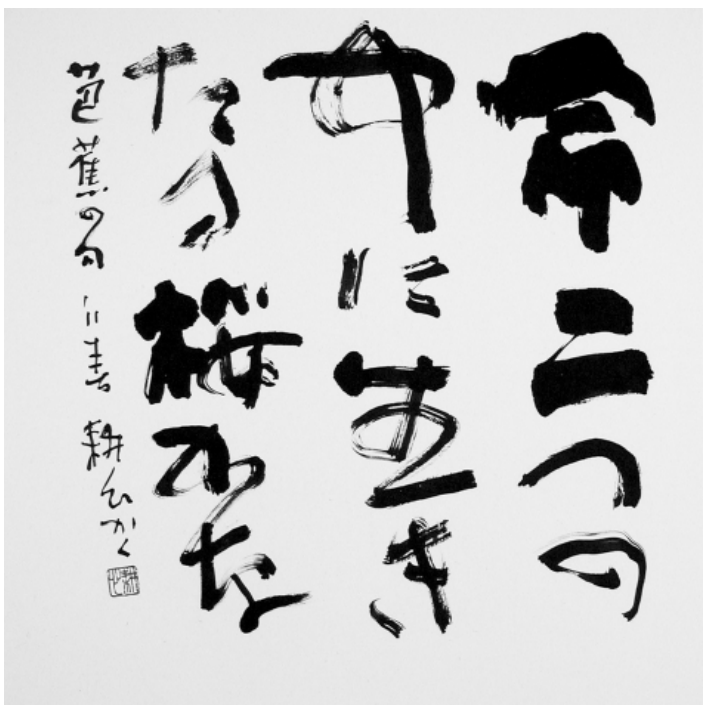 命二つの
中に生き
たる桜かな
芭蕉の句 春 耕 かく